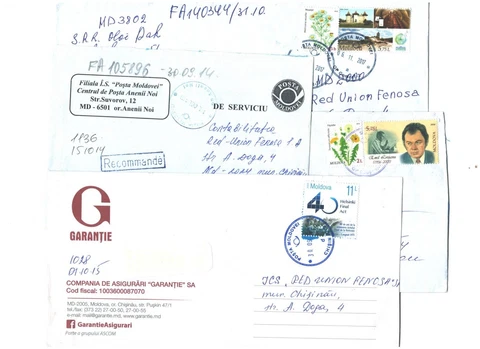 FA140344/31.10
MD3802
S.R.R.
Moldova
FA105896 - 30.09.14
Filiala Î.S. "Poşta Moldovei"
Centrul de Poşta Anenii Noi
Str.Suvorov, 12
MD - 6501 or.Anenii Noi
DE SERVICIU
POŞTA
MOLDOVEI
MD 2000
Red Union Fenosa
Contabilitatea
Red-Union Fenosa
str. A. Doga, 4
Md-2024 mun. Chişinău
1836
151014
Recommandé
Moldova
Moldova 11 L
40
Helsinki
Final
Act
G
GARANŢIE
1028
01.10.15
COMPANIA DE ASIGURĂRI "GARANŢIE" SA
Cod fiscal: 1003600087070
MD-2005, Moldova, or. Chişinău, str. Puşkin 47/1
tel./fax: (373 22) 27-00-50, 27-00-55
mail@garantie.md, www.garantie.md
GarantieAsigurari
Face parte a grupului ASCOM
ICS "RED UNION FENOSA" SA
mun. Chişinău,
str. A. Doga, 4